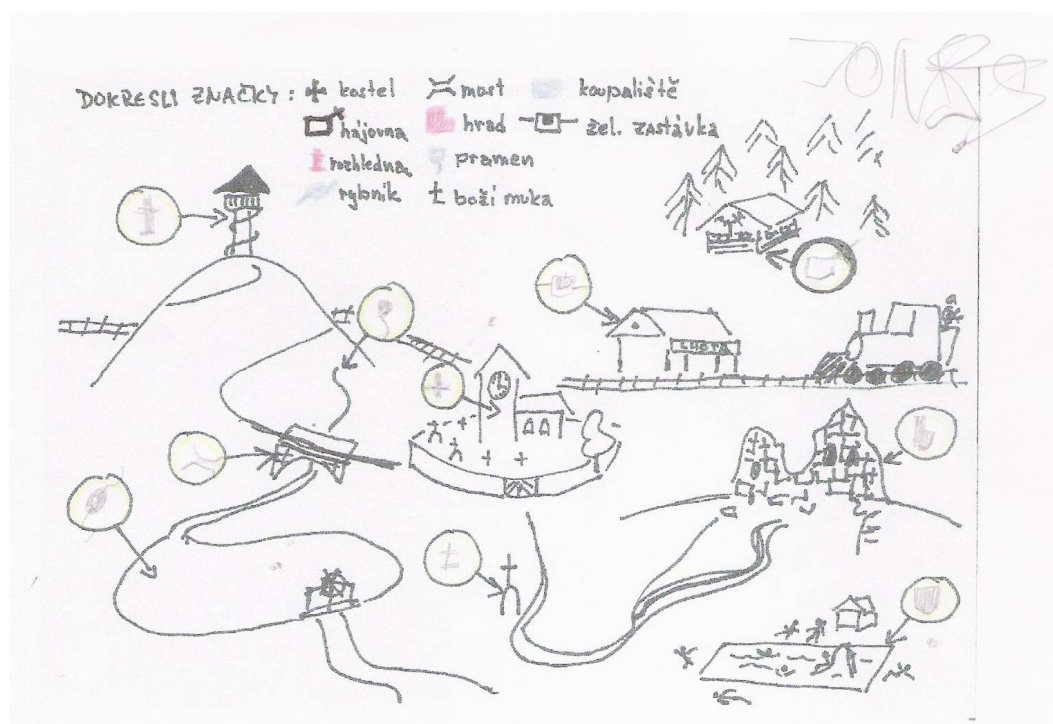 JONÁŠ
DOKRESLI ZNAČKY: kostel most koupaliště
hájovna hrad žel. zastávka
rozhledna pramen
rybník boží muka
LHOTA